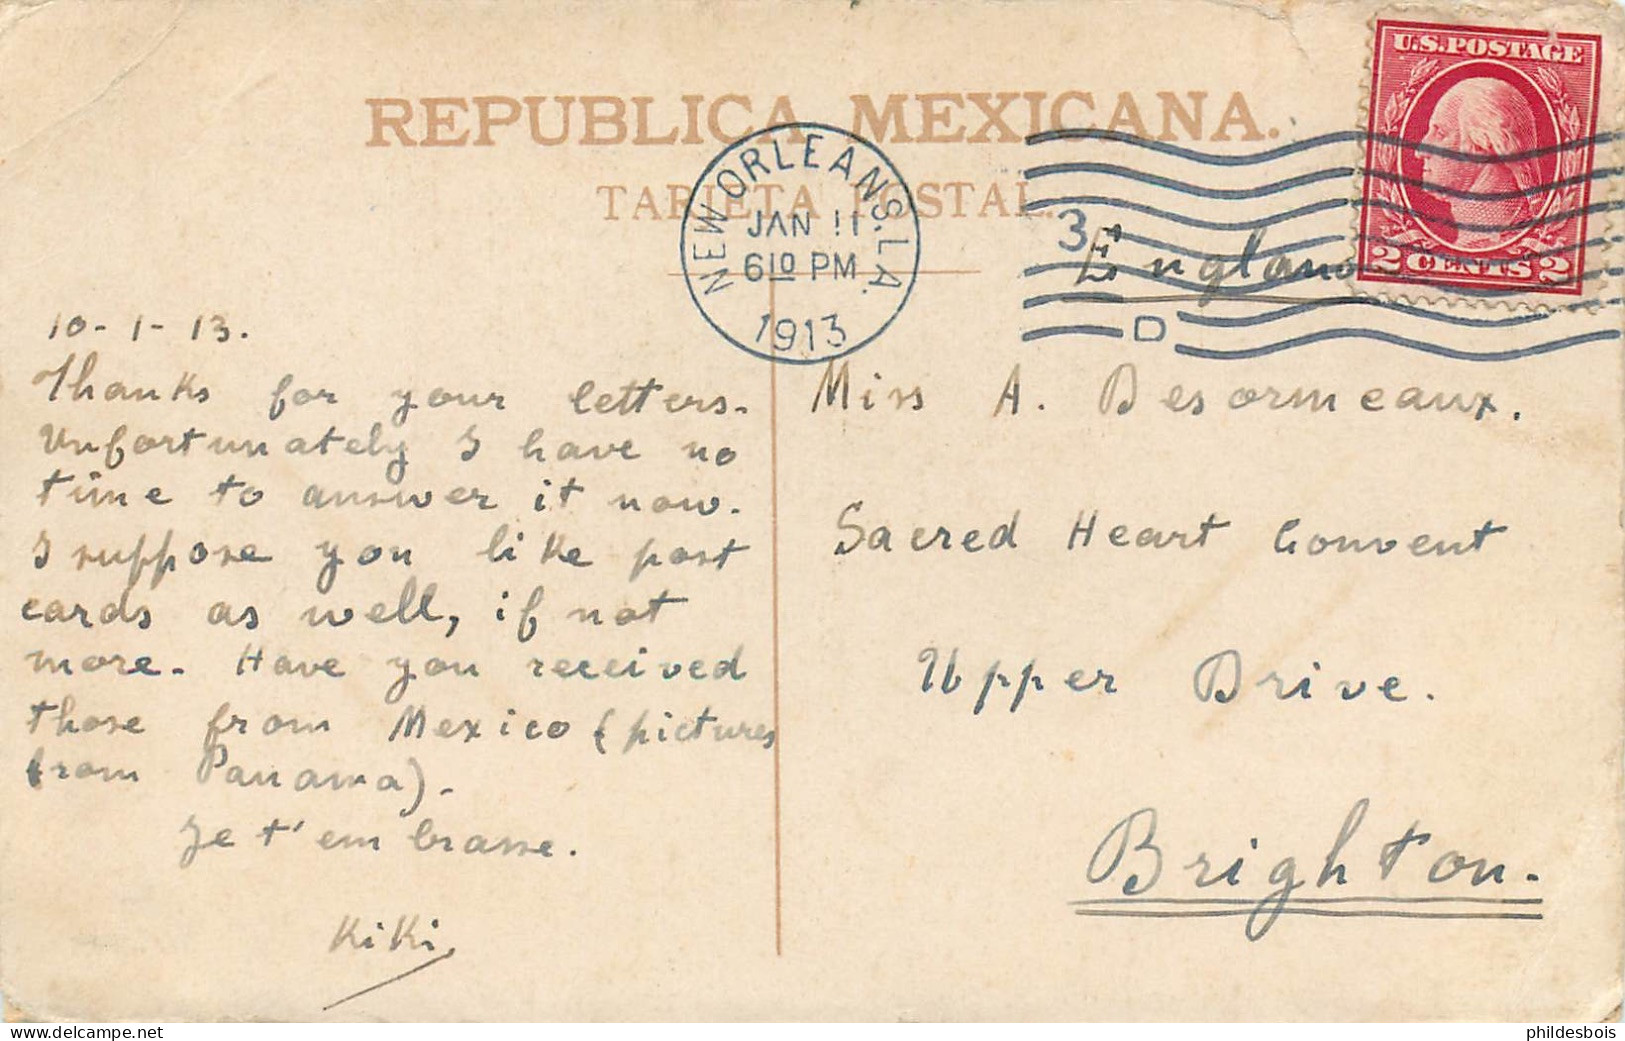 REPUBLICA MEXICANA.
TARJETA POSTAL.
U.S. POSTAGE
2 CENTS 2
NEW ORLEANS. LA.
JAN 11
610 PM
1913
3
D
England
10-1-13.
Thanks for your letters.
Unfortunately I have no
time to answer it now.
I suppose you like post
cards as well, if not
more. Have you received
those from Mexico (pictures
from Panama).
Je t'embrasse.
Kiki
Miss A. Desormeaux.
Sacred Heart Convent
Upper Drive.
Brighton.
delcampe.net
phildesbois